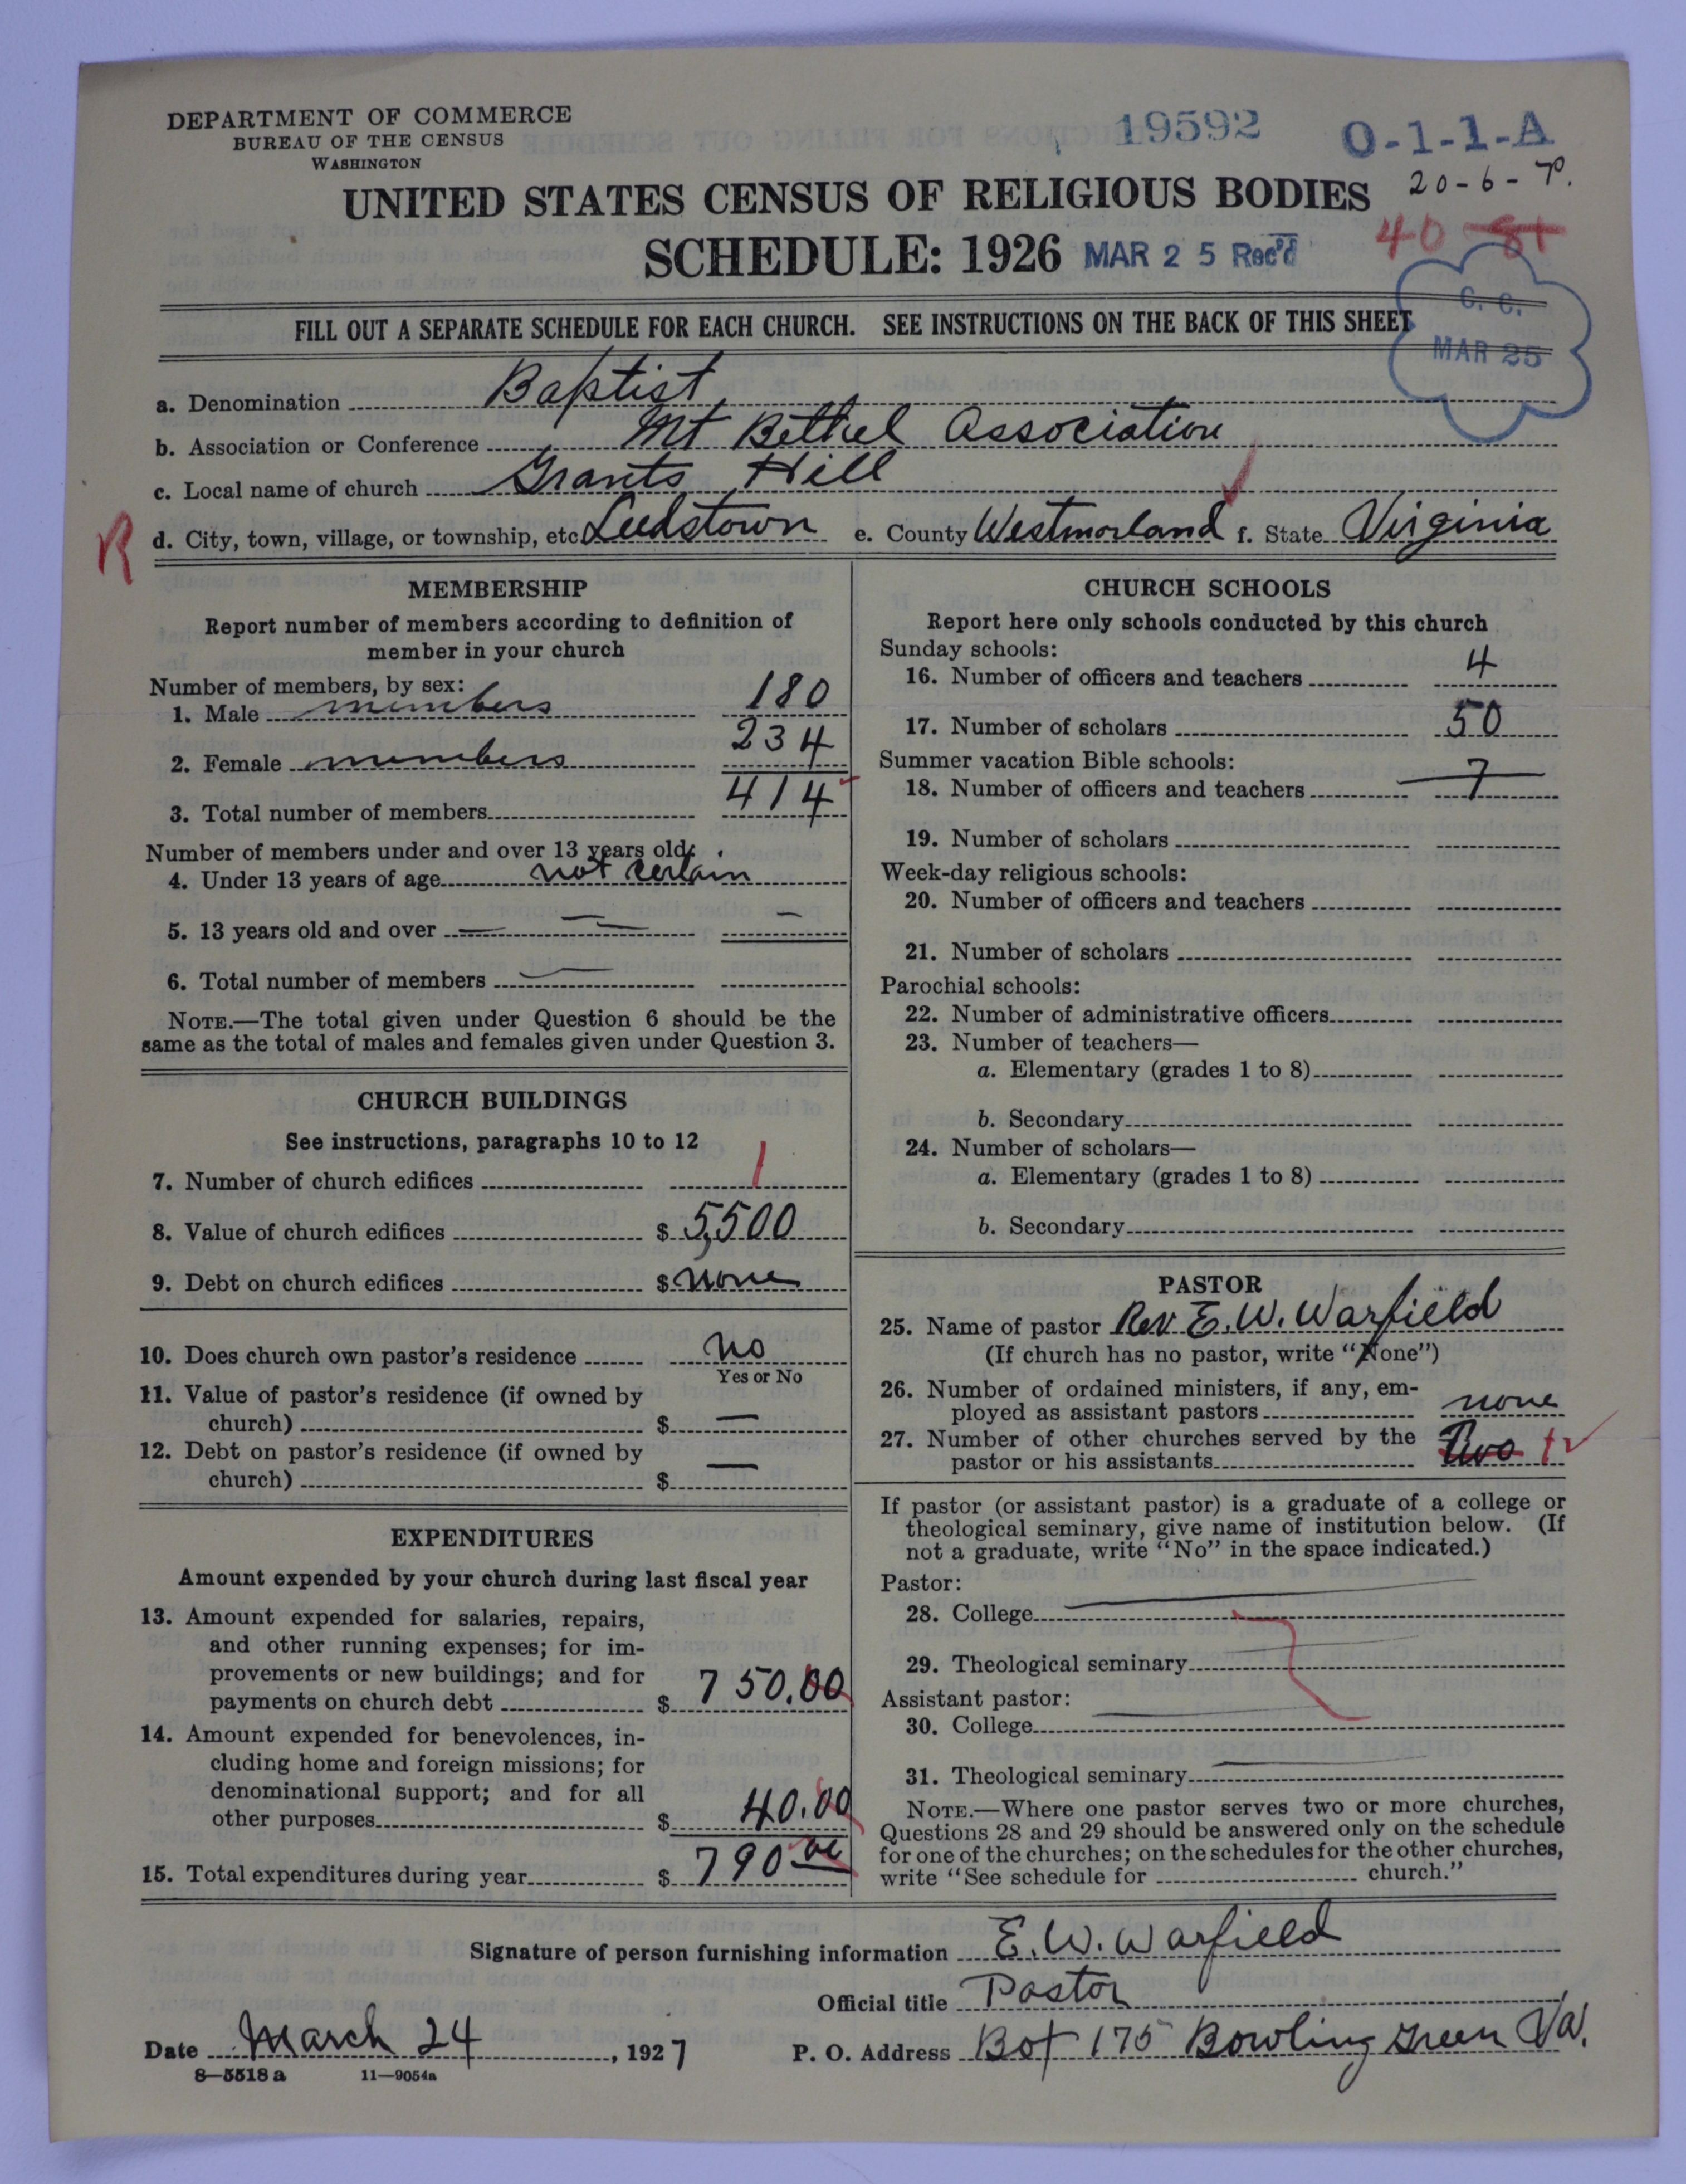 DEPARTMENT OF COMMERCE
BUREAU OF THE CENSUS
WASHINGTON
19592
O-1-1-A
20-6-
UNITED STATES CENSUS OF RELIGIOUS BODIES
40 81
SCHEDULE: 1926 MAR 25 Rec'd
C. C.
MAR 25
FILL OUT A SEPARATE SCHEDULE FOR EACH CHURCH. SEE INSTRUCTIONS ON THE BACK OF THIS SHEET
a. Denomination Baptist
b. Association or Conference Mt Bethel Association
c. Local name of church Grants Hill
R d. City, town, village, or township, etc Leedstown e. County Westmorland f. State Virginia
MEMBERSHIP
Report number of members according to definition of
member in your church
Number of members, by sex:
1. Male members 180
2. Female members 234
3. Total number of members 414
Number of members under and over 13 years old:
4. Under 13 years of age not certain
5. 13 years old and over — — —
6. Total number of members —
NOTE.—The total given under Question 6 should be the
same as the total of males and females given under Question 3.
CHURCH BUILDINGS
See instructions, paragraphs 10 to 12
7. Number of church edifices 1
8. Value of church edifices $ 5,500
9. Debt on church edifices $ none
10. Does church own pastor's residence no
Yes or No
11. Value of pastor's residence (if owned by
church) $ —
12. Debt on pastor's residence (if owned by
church) $ —
EXPENDITURES
Amount expended by your church during last fiscal year
13. Amount expended for salaries, repairs,
and other running expenses; for im-
provements or new buildings; and for
payments on church debt $ 750.00
14. Amount expended for benevolences, in-
cluding home and foreign missions; for
denominational support; and for all
other purposes $ 40.00
15. Total expenditures during year $ 790 00
CHURCH SCHOOLS
Report here only schools conducted by this church
Sunday schools:
16. Number of officers and teachers 4
17. Number of scholars 50
Summer vacation Bible schools:
18. Number of officers and teachers 7
19. Number of scholars
Week-day religious schools:
20. Number of officers and teachers
21. Number of scholars
Parochial schools:
22. Number of administrative officers
23. Number of teachers—
a. Elementary (grades 1 to 8)
b. Secondary
24. Number of scholars—
a. Elementary (grades 1 to 8)
b. Secondary
PASTOR
25. Name of pastor Rev E. W. Warfield
(If church has no pastor, write "None")
26. Number of ordained ministers, if any, em-
ployed as assistant pastors none
27. Number of other churches served by the
pastor or his assistants Two
If pastor (or assistant pastor) is a graduate of a college or
theological seminary, give name of institution below. (If
not a graduate, write "No" in the space indicated.)
Pastor:
28. College
29. Theological seminary
Assistant pastor:
30. College
31. Theological seminary
NOTE.—Where one pastor serves two or more churches,
Questions 28 and 29 should be answered only on the schedule
for one of the churches; on the schedules for the other churches,
write "See schedule for church."
Signature of person furnishing information E. W. Warfield
Official title Pastor
Date March 24, 1927 P. O. Address Box 175 Bowling Green Va.
8—5518 a 11—9054a